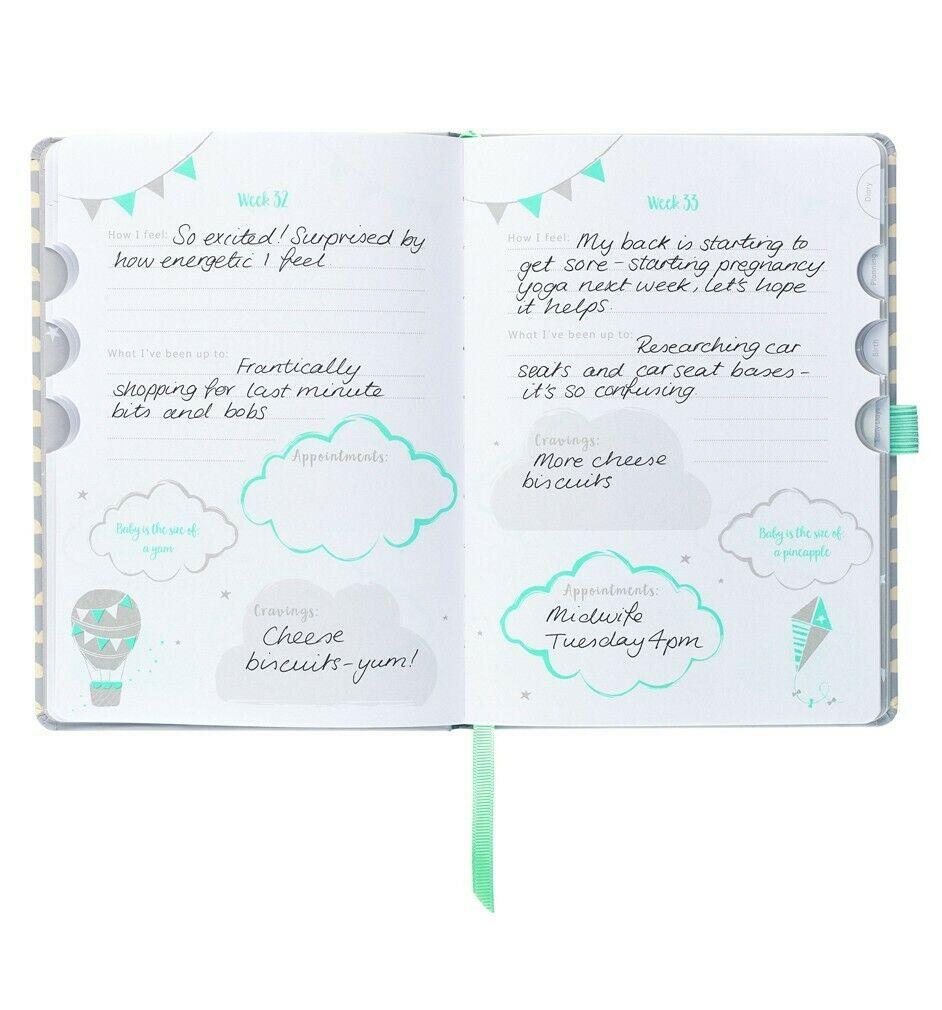 Week 32
How I feel: So excited! Surprised by
how energetic I feel
What I've been up to: Frantically
shopping for last minute
bits and bobs
Appointments:
Baby is the size of:
a yam
Cravings:
Cheese
biscuits-yum!
Week 33
How I feel: My back is starting to
get sore - starting pregnancy
yoga next week, let's hope
it helps.
What I've been up to: Researching car
seats and car seat bases -
it's so confusing
Cravings:
More cheese
biscuits
Baby is the size of:
a pineapple
Appointments:
Midwife
Tuesday 4pm
Diary
Planning
Birth